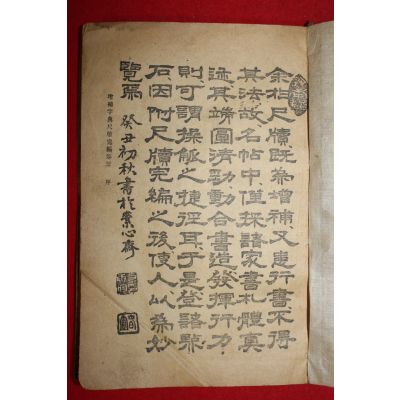 余於尺牘既為增補又患行書不得
其法故名帖中僅採諸家書札體真
迹其端圓清勁動合書造發揮行力
則可謂操觚之捷徑耳于是登諸
石因附尺牘完編之後使人以為妙
覽焉 癸丑初秋書於素心齋
增補字典尺牘完編 序